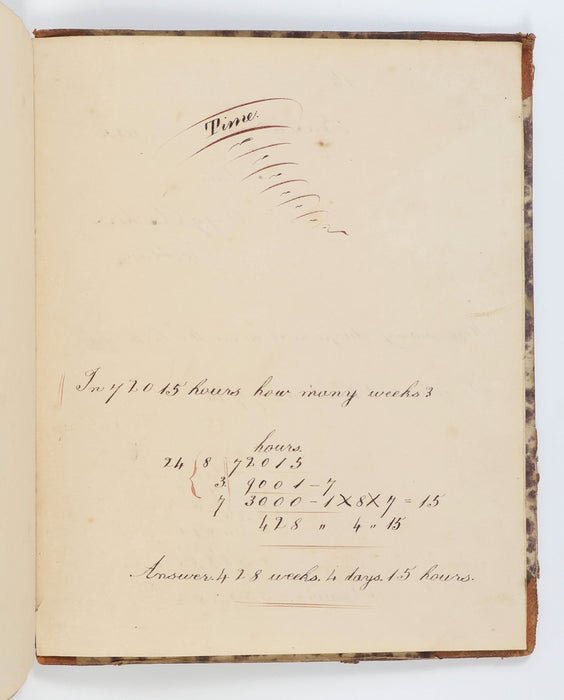 Time.
In 72015 hours how many weeks?
hours.
24 { 8 72015
3 9001-7
7 3000-1X8X7=15
428 " 4 " 15
Answer. 428 weeks. 4 days. 15 hours.